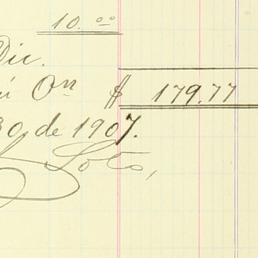 10.00
Dic.
On $ 179.77
30 de 1907.
Soto,